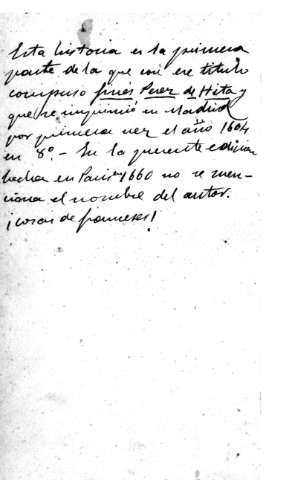 Esta historia es la primera
parte de la que con ese titulo
compuso Ginés Perez de Hita y
que se imprimió en Madrid
por primera vez el año 1604
en 8º.- En la presente edicion
hecha en Paris 1660 no se men-
ciona el nombre del autor.
¡cosas de franceses!